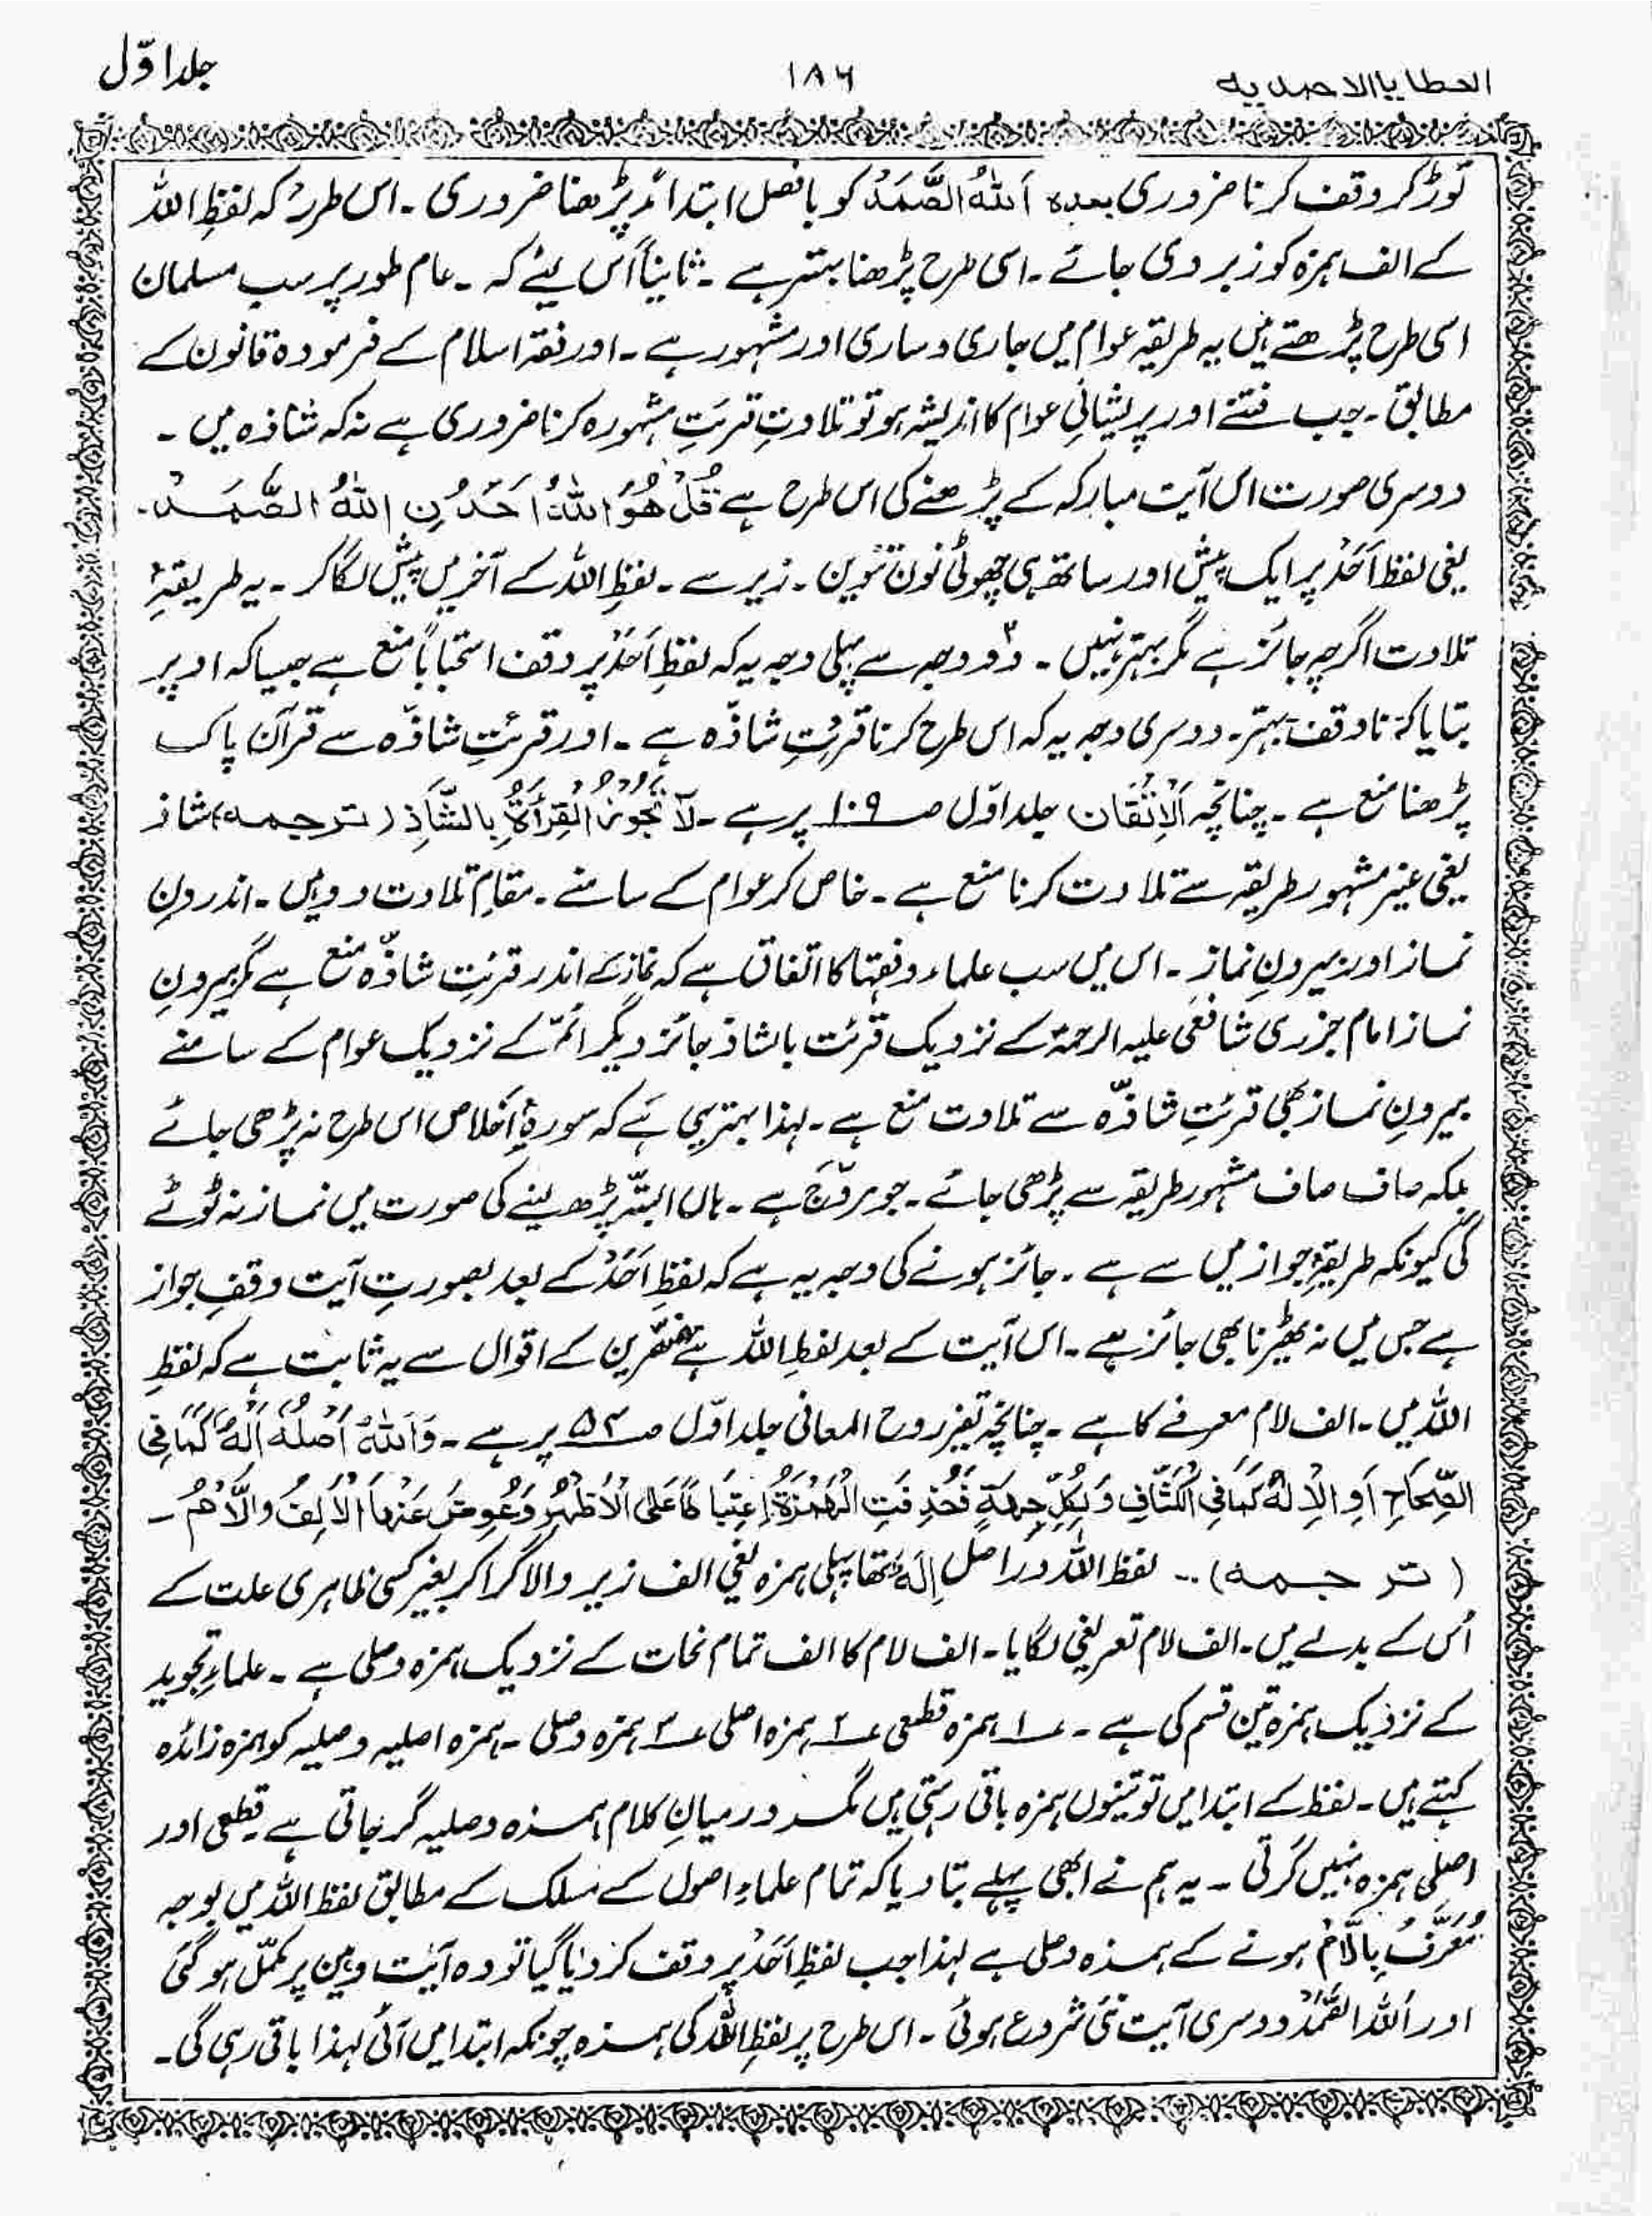 العطایا الاحمدیہ ۱۸۶ جلد اوّل
توڑ کر وقف کرنا ضروری بعدہ اَللّٰهُ الصَّمَدُ کو بافصل ابتداءً پڑھنا ضروری ۔ اس طرح کہ لفظِ اللہ
کے الف ہمزہ کو زبر دی جائے ۔ اسی طرح پڑھنا بہتر ہے ۔ ثانیاً اس لیے کہ ۔ عام طور پر سب مسلمان
اسی طرح پڑھتے ہیں یہ طریقہ عوام میں جاری و ساری اور مشہور ہے ۔ اور فقہ اسلام کے فرمودہ قانون کے
مطابق ۔ جب فتنے اور پریشانیِ عوام کا اندیشہ ہو تو تلاوتِ قرئتِ مشہورہ کرنا ضروری ہے نہ کہ شاذہ میں ۔
دوسری صورت اس آیت مبارکہ کے پڑھنے کی اس طرح ہے قُلْ هُوَ اللّٰهُ اَحَدُ نِ اللّٰهُ الصَّمَدْ ۔
یعنی لفظ اَحَدْ پر ایک پیش اور ساتھ ہی چھوٹی نون تنوین ۔ زیر سے ۔ لفظِ اللہ کے آخر میں پیش لگا کر ۔ یہ طریقۂ
تلاوت اگرچہ جائز ہے مگر بہتر نہیں ۔ دو وجہ سے پہلی وجہ یہ کہ لفظِ اَحَدْ پر وقف استحباباً منع ہے جیسا کہ اوپر
بتایا کہ نا وقف بہتر ۔ دوسری وجہ یہ کہ اس طرح کرنا قرئتِ شاذّہ ہے ۔ اور قرئتِ شاذّہ سے قرآن پاک
پڑھنا منع ہے ۔ چنانچہ اَلْاِتْقَان جلد اوّل صـ ۱۰۹ پر ہے ۔ لَا تَجُوْزُ الْقِرْأَةُ بِالشَّاذِ ( ترجمہ ) شاذ
یعنی غیر مشہور طریقہ سے تلاوت کرنا منع ہے ۔ خاص کر عوام کے سامنے ۔ مقامِ تلاوت دو ہیں ۔ اندرونِ
نماز اور بیرونِ نماز ۔ اس میں سب علماء و فقہا کا اتفاق ہے کہ نماز کے اندر قرئتِ شاذّہ منع ہے مگر بیرونِ
نماز امام جزری شافعی علیہ الرحمۃ کے نزدیک قرئت بالشاذ جائز دیگر ائمّہ کے نزدیک عوام کے سامنے
بیرونِ نماز بھی قرئتِ شاذّہ سے تلاوت منع ہے ۔ لہذا بہتر یہی ہے کہ سورۂ اَخلاص اس طرح نہ پڑھی جائے
بلکہ صاف صاف مشہور طریقہ سے پڑھی جائے ۔ جو مروّج ہے ۔ ہاں البتّہ پڑھ لینے کی صورت میں نماز نہ ٹوٹے
گی کیونکہ طریقۂ جواز میں سے ہے ۔ جائز ہونے کی وجہ یہ ہے کہ لفظِ اَحَدْ کے بعد بصورتِ آیت وقفِ جواز
ہے جس میں نہ ٹھیرنا بھی جائز ہے ۔ اس آیت کے بعد لفظِ اللہ ہے مفسّرین کے اقوال سے یہ ثابت ہے کہ لفظِ
اللہ میں ۔ الف لام معرفے کا ہے ۔ چنانچہ تفسیر روح المعانی جلد اوّل صـ ۵۳ پر ہے ۔ وَاَللّٰهُ اَصْلُهُ اَلٰهٌ کَمَا فِی
الصِّحَاحِ اَوِ الْاِلٰهُ کَمَا فِی الْکَشَّافِ وَلِکُلٍّ جِهَةٌ فَحُذِفَتِ الْهَمْزَةُ اِعْتِبَاطًا عَلَی الْاَظْهَرِ وَعُوِضَ عَنْهَا الْاَلِفُ وَاللَّامُ ۔
( ترجمہ ) ۔ لفظ اللہ دراصل اِلٰهٌ تھا پہلی ہمزہ یعنی الف زیر والا گرا کر بغیر کسی ظاہری علت کے
اُس کے بدلے میں ۔ الف لام تعریفی لگایا ۔ الف لام کا الف تمام نحات کے نزدیک ہمزہ وصلی ہے ۔ علماءِ تجوید
کے نزدیک ہمزہ تین قسم کی ہے ۔ ۱؎ ہمزہ قطعی ۲؎ ہمزہ اصلی ۳؎ ہمزہ وصلی ۔ ہمزہ اصلیہ وصلیہ کو ہمزہ زائدہ
کہتے ہیں ۔ لفظ کے ابتدا میں تو تینوں ہمزہ باقی رہتی ہیں مگر درمیانِ کلام ہمزہ وصلیہ گر جاتی ہے قطعی اور
اصلی ہمزہ نہیں گرتی ۔ یہ ہم نے ابھی پہلے بتا دیا کہ تمام علماءِ اصول کے مسلک کے مطابق لفظ اللہ میں بوجہ
مُعَرَّفْ بِاللَّامْ ہونے کے ہمزہ وصلی ہے لہذا جب لفظِ اَحَدْ پر وقف کر دیا گیا تو وہ آیت وہیں پر مکمّل ہو گئی
اور اَللہ الصَّمَدْ دوسری آیت نئی شروع ہوئی ۔ اس طرح پر لفظِ اللہ کی ہمزہ چونکہ ابتدا میں آئی لہذا باقی رہی گی ۔